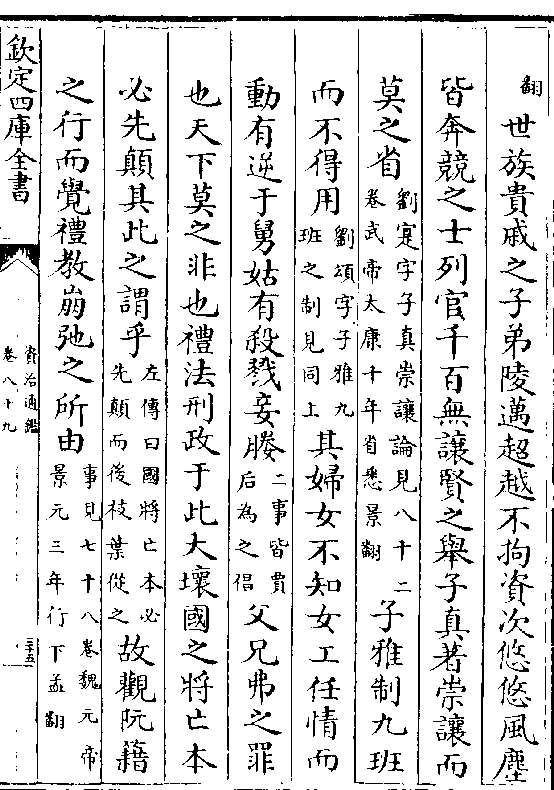 翻世族貴戚之子弟陵邁超越不拘資次悠悠風塵
皆奔競之士列官千百無讓賢之舉子真著崇讓而
莫之省劉寔字子真崇讓論見八十二卷武帝太康十年省悉景翻子雅制九班
而不得用劉頌字子雅九班之制見同上其婦女不知女工任情而
動有逆于舅姑有殺戮妾媵二事皆賈后為之倡父兄弗之罪
也天下莫之非也禮法刑政于此大壞國之將亡本
必先顛其此之謂乎左傳曰國將亡本必先顛而後枝葉從之故觀阮籍
之行而覺禮教崩弛之所由事見七十八卷魏元帝景元三年行下孟翻
欽定四庫全書
資治通鑑
卷八十九
三十五